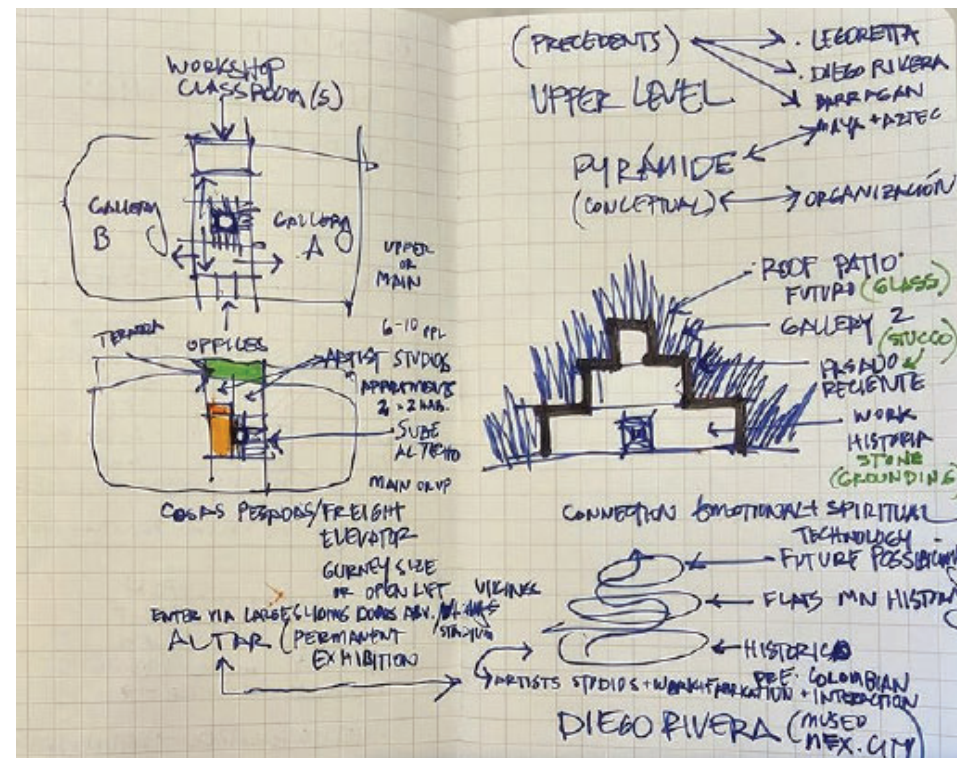 WORKSHOP
CLASSROOM(S)
GALLERY
B
GALLERY
A
UPPER
OR
MAIN
TERRAZA
OFFICES
6-10 PPL
ARTIST STUDIOS
APPARTMENTS
2 × 2 HAB.
SUBE
AL TECHO
MAIN OR UP
COSAS PESADAS/FREIGHT
ELEVATOR
GURNEY SIZE
OR OPEN LIFT
VIKINGS
ENTER VIA LARGE SLIDING DOORS
STADIUM
ALTAR (PERMANENT
EXHIBITION
(PRECEDENTS)
LEGORETTA
DIEGO RIVERA
BARRAGAN
MAYA + AZTEC
UPPER LEVEL
PYRÁMIDE
(CONCEPTUAL)
ORGANIZACIÓN
ROOF PATIO
FUTURO (GLASS)
GALLERY 2
(STUCCO)
PASADO
RECIENTE
WORK
HISTORIA
STONE
(GROUNDING)
CONNECTION EMOTIONAL + SPIRITUAL
TECHNOLOGY
FUTURE
FLATS MN HISTORY
HISTORICO
PRE-COLOMBIAN
ARTISTS STUDIOS + WORK + FABRICATION + INTERACTION
DIEGO RIVERA (MUSEO
MEX. CITY